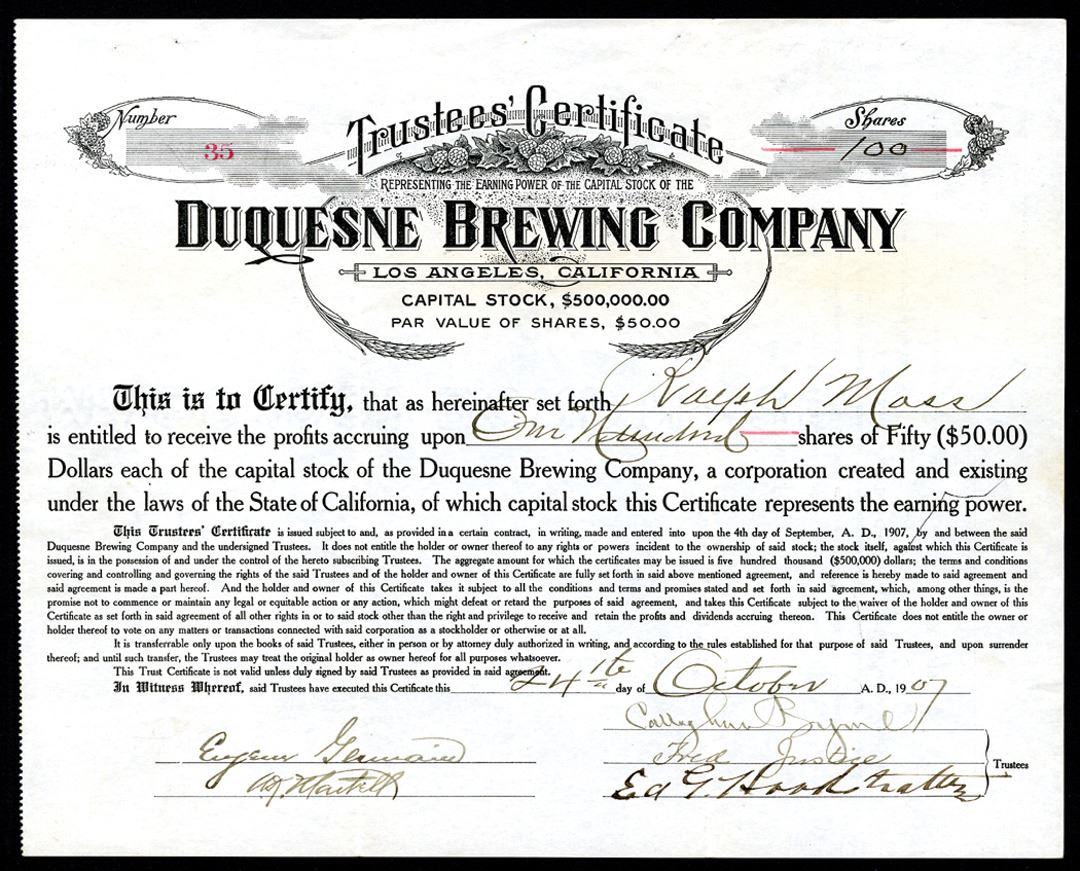 Number
35
Trustees' Certificate
Shares
100
REPRESENTING THE EARNING POWER OF THE CAPITAL STOCK OF THE
DUQUESNE BREWING COMPANY
LOS ANGELES, CALIFORNIA
CAPITAL STOCK, $500,000.00
PAR VALUE OF SHARES, $50.00
This is to Certify, that as hereinafter set forth Ralph Moss
is entitled to receive the profits accruing upon One Hundred shares of Fifty ($50.00)
Dollars each of the capital stock of the Duquesne Brewing Company, a corporation created and existing
under the laws of the State of California, of which capital stock this Certificate represents the earning power.
This Trustees' Certificate is issued subject to and, as provided in a certain contract, in writing, made and entered into upon the 4th day of September, A. D., 1907, by and between the said
Duquesne Brewing Company and the undersigned Trustees. It does not entitle the holder or owner thereof to any rights or powers incident to the ownership of said stock; the stock itself, against which this Certificate is
issued, is in the possession of and under the control of the hereto subscribing Trustees. The aggregate amount for which the certificates may be issued is five hundred thousand ($500,000) dollars; the terms and conditions
covering and controlling and governing the rights of the said Trustees and of the holder and owner of this Certificate are fully set forth in said above mentioned agreement, and reference is hereby made to said agreement and
said agreement is made a part hereof. And the holder and owner of this Certificate takes it subject to all the conditions and terms and promises stated and set forth in said agreement, which, among other things, is the
promise not to commence or maintain any legal or equitable action or any action, which might defeat or retard the purposes of said agreement, and takes this Certificate subject to the waiver of the holder and owner of this
Certificate as set forth in said agreement of all other rights in or to said stock other than the right and privilege to receive and retain the profits and dividends accruing thereon. This Certificate does not entitle the owner or
holder thereof to vote on any matters or transactions connected with said corporation as a stockholder or otherwise or at all.
It is transferrable only upon the books of said Trustees, either in person or by attorney duly authorized in writing, and according to the rules established for that purpose of said Trustees, and upon surrender
thereof; and until such transfer, the Trustees may treat the original holder as owner hereof for all purposes whatsoever.
This Trust Certificate is not valid unless duly signed by said Trustees as provided in said agreement.
In Witness Whereof, said Trustees have executed this Certificate this 24th day of October A. D., 1907
Callaghan Byrne
Eugene Germain
Fred Justice
Trustees
Martell
Ed G. Hookstratten